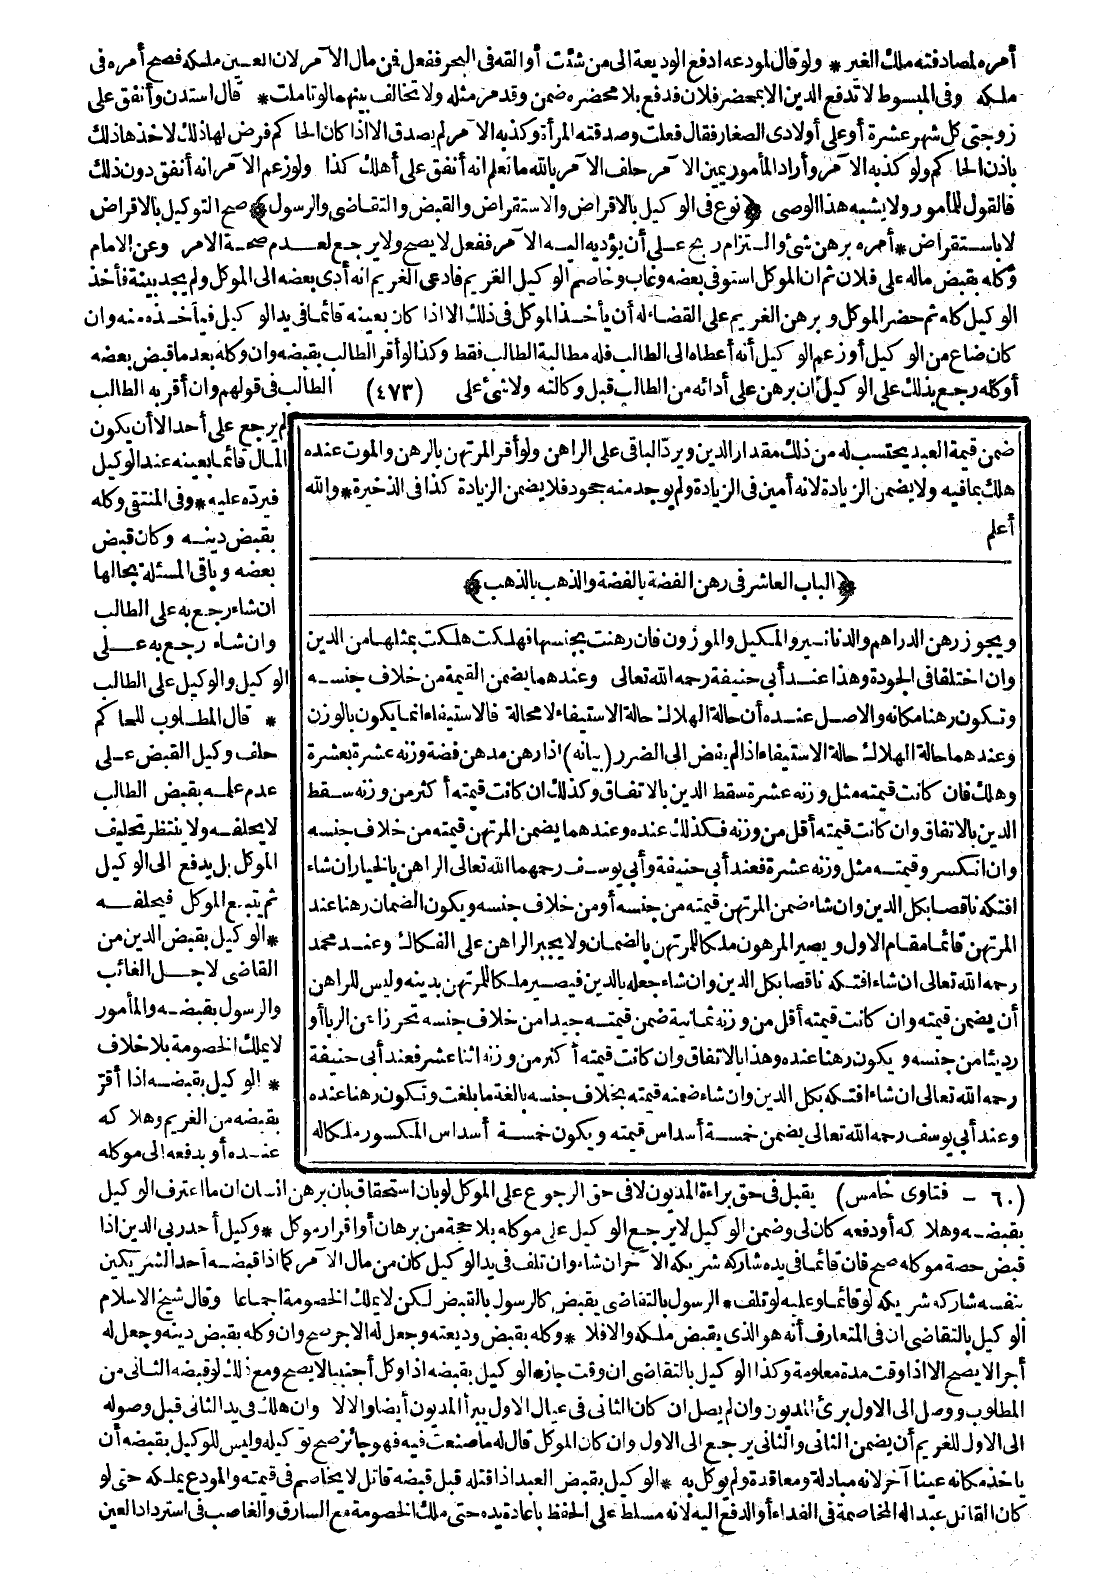 أمره لمصادفته ملك الغير * ولو قال لمودعه ادفع الوديعة الى من شئت أو القه فى البحر ففعل فمن مال الآمر لان العين ملكه فصح أمره فى
ملكه وفى المبسوط لا تدفع الدين الا بمحضر فلان فدفع بلا محضره ضمن وقد مر مثله ولا تخالف بينهما لو تأملت * قال استدن وأنفق على
زوجتى كل شهر عشرة أو على أولادى الصغار فقال فعلت وصدقته المرأة وكذبه الآمر لم يصدق الا اذا كان الحاكم فرض لها ذلك لاخذها ذلك
باذن الحاكم ولو كذبه الآمر وأراد المأمور يمين الآمر حلف الآمر بالله ما تعلم انه أنفق على أهلك كذا ولو زعم الآمر انه أنفق دون ذلك
فالقول للمأمور ولا يشبه هذا الوصى ﴿نوع فى الوكيل بالاقراض والاستقراض والقبض والتقاضى والرسول﴾ صح التوكيل بالاقراض
لا باستقراض * أمره برهن شئ والتزام ربح على أن يؤديه اليه الآمر ففعل لا يصح ولا يرجع لعدم صحة الامر وعن الامام
وكله بقبض ماله على فلان ثم ان الموكل استوفى بعضه وغاب وخاصم الوكيل الغريم فادعى الغريم انه أدى بعضه الى الموكل ولم يجد بينة فأخذ
الوكيل كله ثم حضر الموكل وبرهن الغريم على القضاء له أن يأخذ الموكل فى ذلك الا اذا كان بعينه قائما فى يد الوكيل فيأخذه منه وان
كان ضاع من الوكيل أو زعم الوكيل أنه أعطاه الى الطالب فله مطالبة الطالب فقط وكذا لو أقر الطالب بقبضه وان وكله بعد ما قبض بعضه
أو كله رجع بذلك على الوكيل ان برهن على أدائه من الطالب قبل وكالته ولا شئ على (٤٧٣) الطالب فى قولهم وان أقر به الطالب
لم يرجع على أحد الا أن يكون
المال قائما بعينه عند الوكيل
فيرده عليه * وفى المنتقى وكله
بقبض دينه وكان قبض
بعضه وباقى المسئلة بحالها
ان شاء رجع به على الطالب
وان شاء رجع به على
الوكيل والوكيل على الطالب
* قال المطلوب للحاكم
حلف وكيل القبض على
عدم علمه بقبض الطالب
لا يحلفه ولا ينتظر تحليف
الموكل بل يدفع الى الوكيل
ثم يتبع الموكل فيحلفه
* الوكيل بقبض الدين من
القاضى لاجل الغائب
والرسول بقبضه والمأمور
لا يملك الخصومة بلا خلاف
* الوكيل بقبضه اذا أقر
بقبضه من الغريم وهلاكه
عنده أو بدفعه الى موكله
ضمن قيمة العبد يحتسب له من ذلك مقدار الدين ويرد الباقى على الراهن ولو أقر المرتهن بالرهن والموت عنده
هلك بما فيه ولا يضمن الزيادة لانه أمين فى الزيادة ولم يوجد منه جحود فلا يضمن الزيادة كذا فى الذخيرة * والله
أعلم
﴿الباب العاشر فى رهن الفضة بالفضة والذهب بالذهب﴾
ويجوز رهن الدراهم والدنانير والمكيل والموزون فان رهنت بجنسها فهلكت هلكت بمثلها من الدين
وان اختلفا فى الجودة وهذا عند أبى حنيفة رحمه الله تعالى وعندهما يضمن القيمة من خلاف جنسه
وتكون رهنا مكانه والاصل عنده أن حالة الهلاك حالة الاستيفاء لا محالة فالاستيفاء انما يكون بالوزن
وعندهما حالة الهلاك حالة الاستيفاء اذا لم يفض الى الضرر (بيانه) اذا رهن مدهن فضة وزنه عشرة بعشرة
وهلك فان كانت قيمته مثل وزنه عشرة سقط الدين بالاتفاق وكذلك ان كانت قيمته أكثر من وزنه سقط
الدين بالاتفاق وان كانت قيمته أقل من وزنه فكذلك عنده وعندهما يضمن المرتهن قيمته من خلاف جنسه
وان انكسر وقيمته مثل وزنه عشرة فعند أبى حنيفة وأبى يوسف رحمهما الله تعالى الراهن بالخيار ان شاء
افتكه ناقصا بكل الدين وان شاء ضمن المرتهن قيمته من جنسه أو من خلاف جنسه ويكون الضمان رهنا عند
المرتهن قائما مقام الاول ويصير المرهون ملكا للمرتهن بالضمان ولا يجبر الراهن على الفكاك وعند محمد
رحمه الله تعالى ان شاء افتكه ناقصا بكل الدين وان شاء جعله بالدين فيصير ملكا للمرتهن بدينه وليس للراهن
أن يضمن قيمته وان كانت قيمته أقل من وزنه ثمانية ضمن قيمته جيدا من خلاف جنسه تحرزا عن الربا أو
رديئا من جنسه ويكون رهنا عنده وهذا بالاتفاق وان كانت قيمته أكثر من وزنه اثنا عشر فعند أبى حنيفة
رحمه الله تعالى ان شاء افتكه بكل الدين وان شاء ضمنه قيمته بخلاف جنسه بالغة ما بلغت وتكون رهنا عنده
وعند أبى يوسف رحمه الله تعالى يضمن خمسة أسداس قيمته ويكون خمسة أسداس المكسور ملكا له
(٦٠ - فتاوى خامس) يقبل فى حق براءة المديون لا فى حق الرجوع على الموكل لو بان استحقاق بان برهن انسان ان ما اعترف الوكيل
بقبضه وهلاكه أو دفعه كان لى وضمن الوكيل لا يرجع الوكيل على موكله بلا حجة من برهان أو اقرار موكل * وكيل أحد ربى الدين اذا
قبض حصة موكله صح فان قائما فى يده شاركه شريكه الآخر ان شاء وان تلف فى يد الوكيل كان من مال الآمر كما اذا قبضه أحد الشريكين
بنفسه شاركه شريكه لو قائما وعليه لو تلف * الرسول بالتقاضى يقبض كالرسول بالقبض لكن لا يملك الخصومة اجماعا وقال شيخ الاسلام
الوكيل بالتقاضى ان فى المتعارف أنه هو الذى يقبض ملكه والا فلا * وكله بقبض وديعته وجعل له الاجر صح وان وكله بقبض دينه وجعل له
أجرا لا يصح الا اذا وقت مدة معلومة وكذا الوكيل بالتقاضى ان وقت جاز * الوكيل بقبضه اذا وكل أجنبيا لا يصح ومع ذلك لو قبضه الثانى من
المطلوب ووصل الى الاول برئ المديون وان لم يصل ان كان الثانى فى عيال الاول يبرأ المديون أيضا والا لا وان هلك فى يد الثانى قبل وصوله
الى الاول للغريم أن يضمن الثانى والثانى يرجع الى الاول وان كان الموكل قال له ما صنعت فيه فهو جائز صح توكيله وليس للوكيل بقبضه أن
يأخذ مكانه عينا آخر لانه مبادلة ومعاقدة ولم يوكل به * الوكيل بقبض العبد اذا قتله قبل قبضه قاتل لا يخاصم فى قيمته والمودع يملكه حتى لو
كان القاتل عبدا له المخاصمة فى الفداء أو الدفع اليه لانه مسلط على الحفظ باعادة يده حتى ملك الخصومة مع السارق والغاصب فى استرداد العين